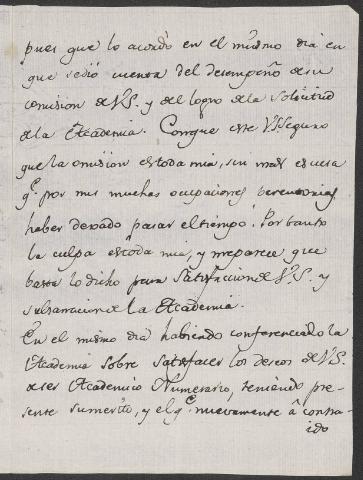 pues que lo acordó en el mismo dia en
que sedió cuenta del desempeño de su
comision de V.S. y del logro de la solicitud
de la Academia. Conque este V.S. seguro
que la omision estoda mia, sin mas escusa
q.e por mis muchas ocupaciones
haber dexado pasar el tiempo. Por tanto
la culpa estoda mia, y meparece que
basta lo dicho para satisfaccion de V.S. y
de la Academia.
En el mismo dia habiendo conferenciado la
Academia sobre satisfacer los deseos de V.S.
de ser Academico Numerario, teniendo pre-
sente sumerito, y el q.e nuevamente á contra-
ido